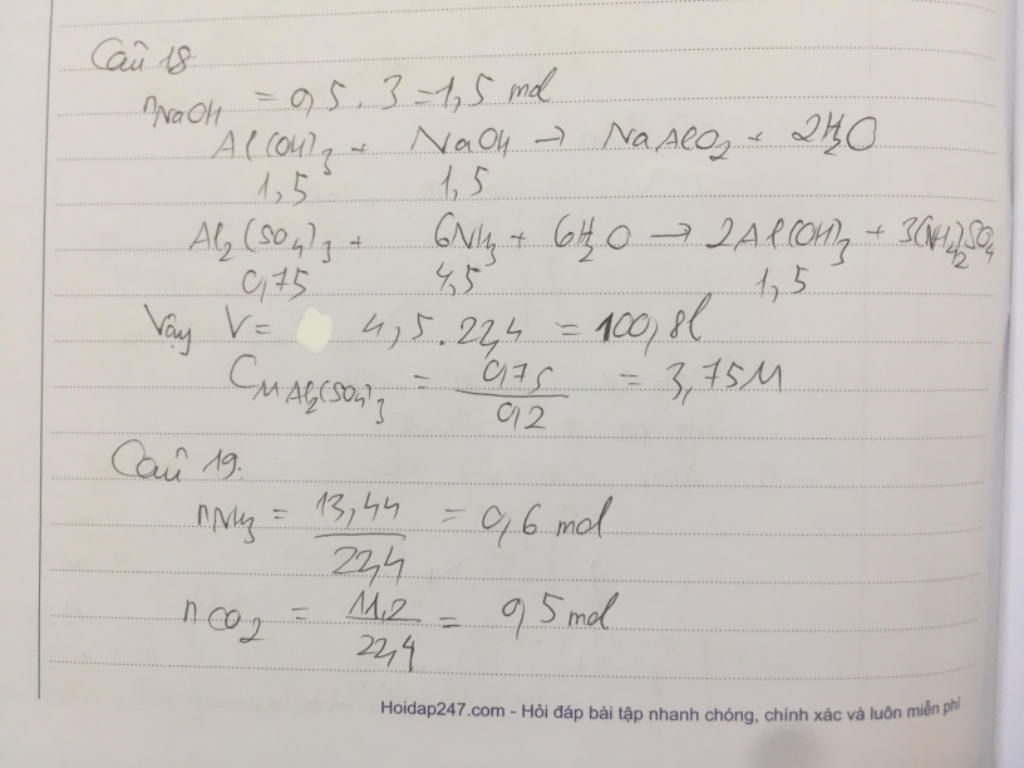 Câu 18
nNaOH = 0,5 . 3 = 1,5 mol
Al(OH)3 + NaOH → NaAlO2 + 2H2O
1,5 1,5
Al2(SO4)3 + 6NH3 + 6H2O → 2Al(OH)3 + 3(NH4)2SO4
0,75 4,5 1,5
Vậy V = 4,5 . 22,4 = 100,8l
CM Al2(SO4)3 = 0,75 / 0,2 = 3,75M
Câu 19.
nNH3 = 13,44 / 22,4 = 0,6 mol
nCO2 = 11,2 / 22,4 = 0,5 mol
Hoidap247.com - Hỏi đáp bài tập nhanh chóng, chính xác và luôn miễn phí